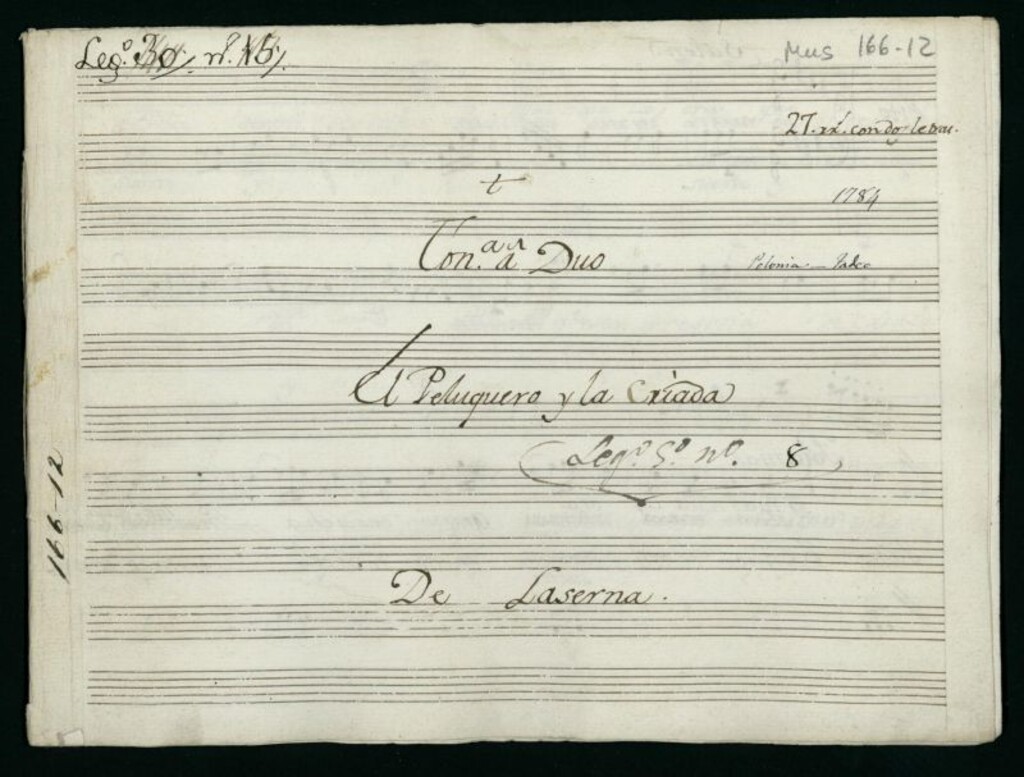 Leg.º 30. nº. 15.
Mus 166-12
27. rx.ˢ con dos letras.
t
1784
Ton.ª a Duo
Polonia - Tadeo
El Peluquero y la Criada
Leg.º 5.º nº. 8
166-12
De Laserna.